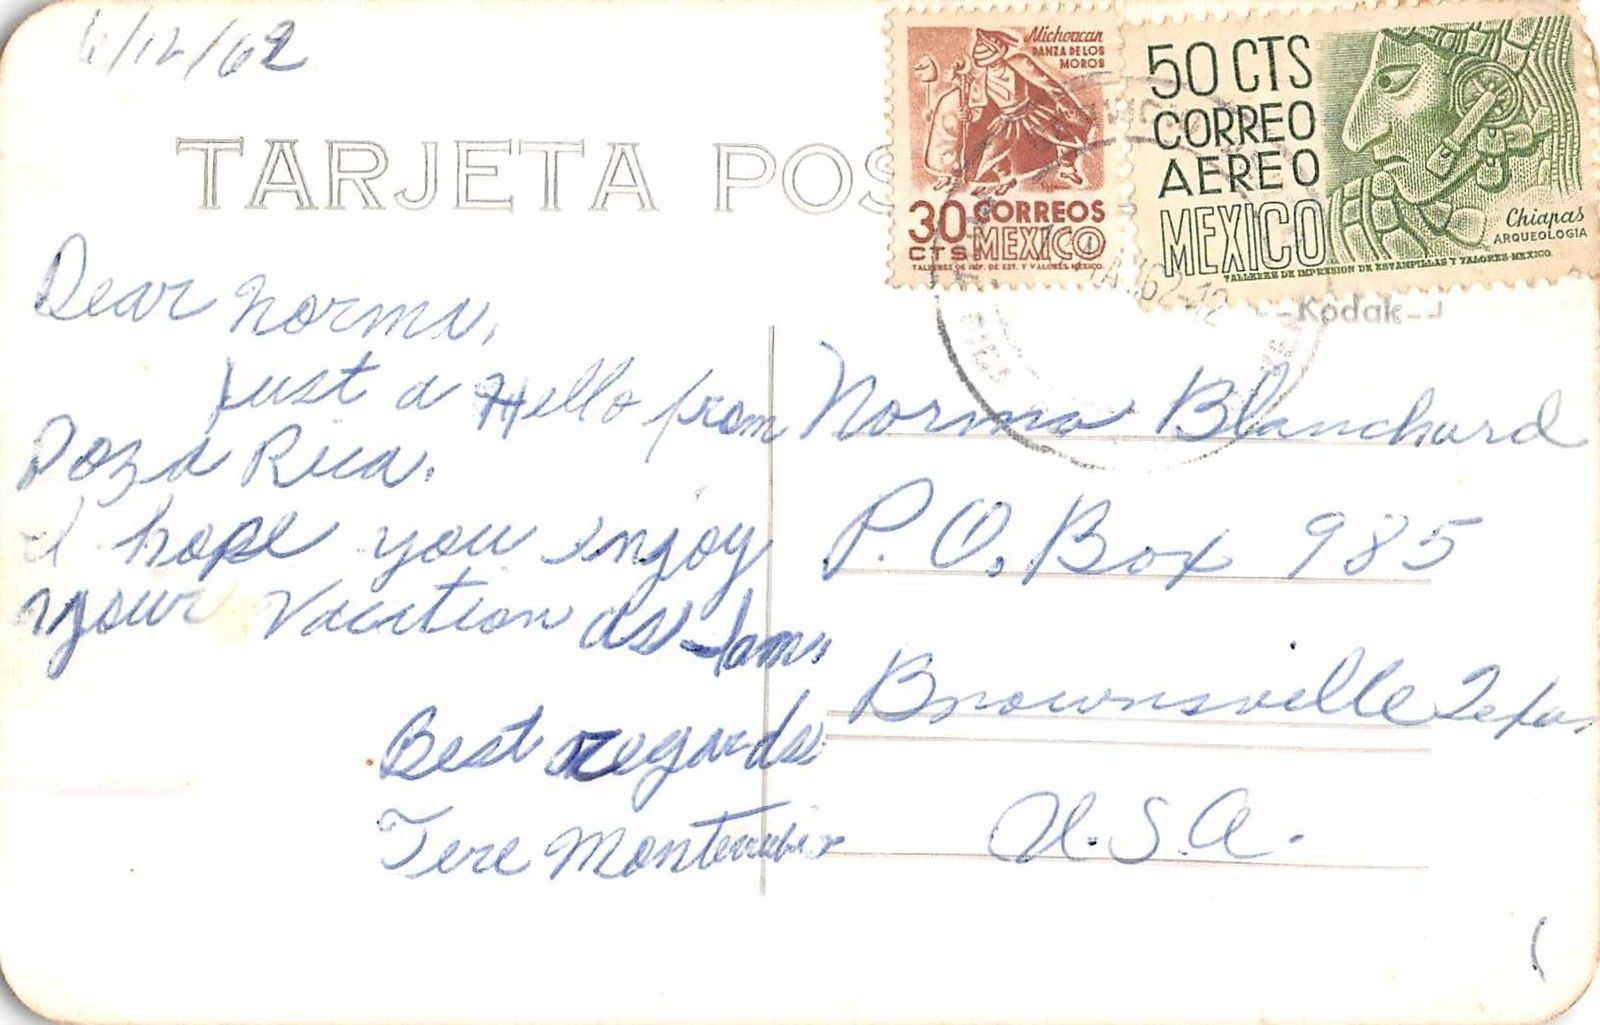 6/12/62
TARJETA POS
Michoacan
DANZA DE LOS
MOROS
30 CORREOS
CTS MEXICO
TALLERES DE IMP. DE EST. Y VALORES. MEXICO.
50 CTS
CORREO
AEREO
MEXICO
Chiapas
ARQUEOLOGIA
TALLERES DE IMPRESION DE ESTAMPILLAS Y VALORES-MEXICO.
62-12
--Kodak--
Dear Norma,
Just a Hello from
Poza Rica.
I hope you enjoy
your vacation as I am,
Best regards
Tere
Norma Blanchard
P.O. Box 985
Brownsville Texas
U.S.A.